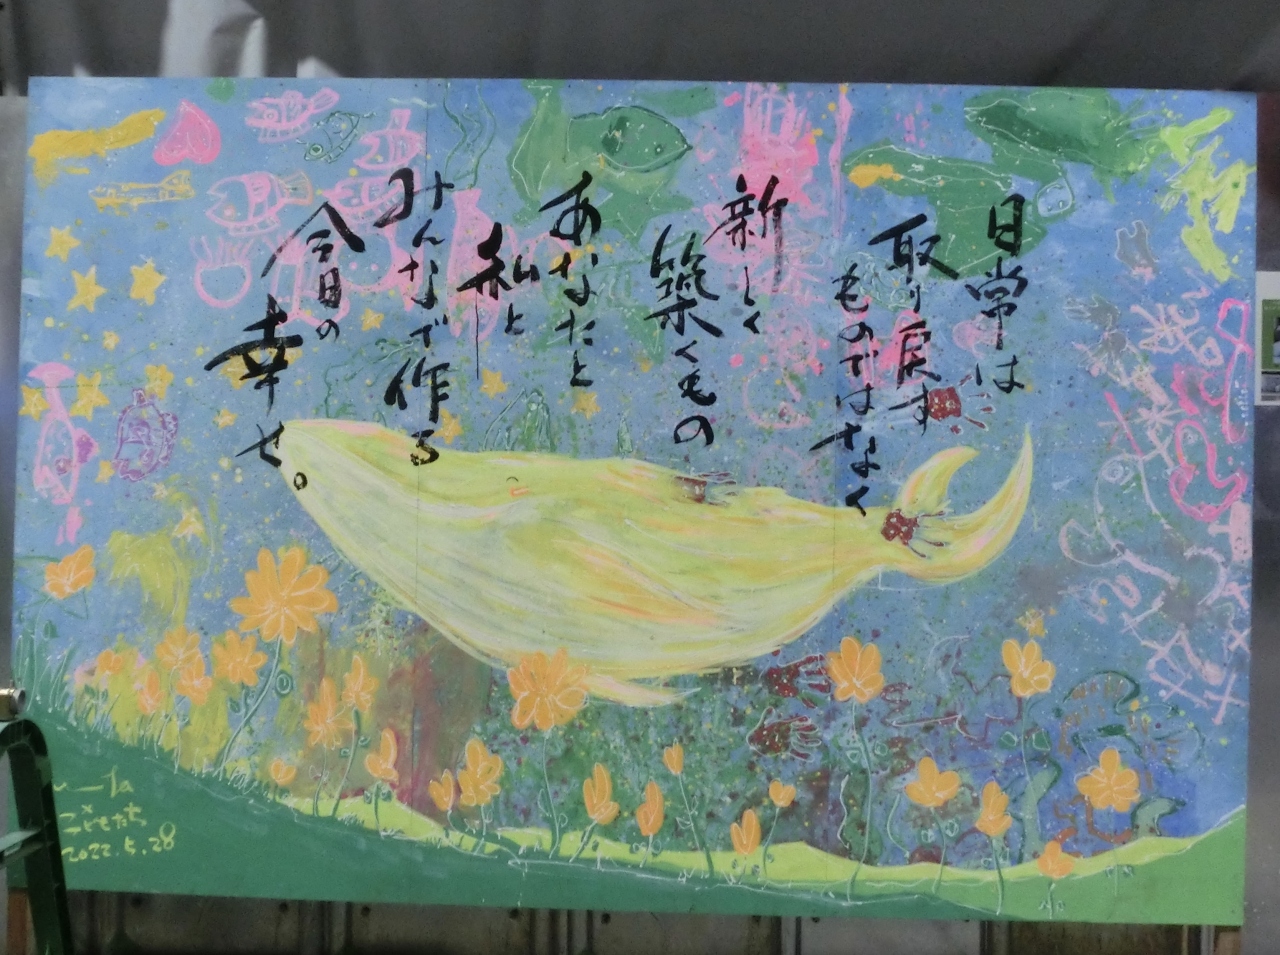 日常は
取り戻す
ものではなく
新しく
築くもの
あなたと
私と
みんなで作る
今日の
幸せ
×
こどもたち
2022.5.28